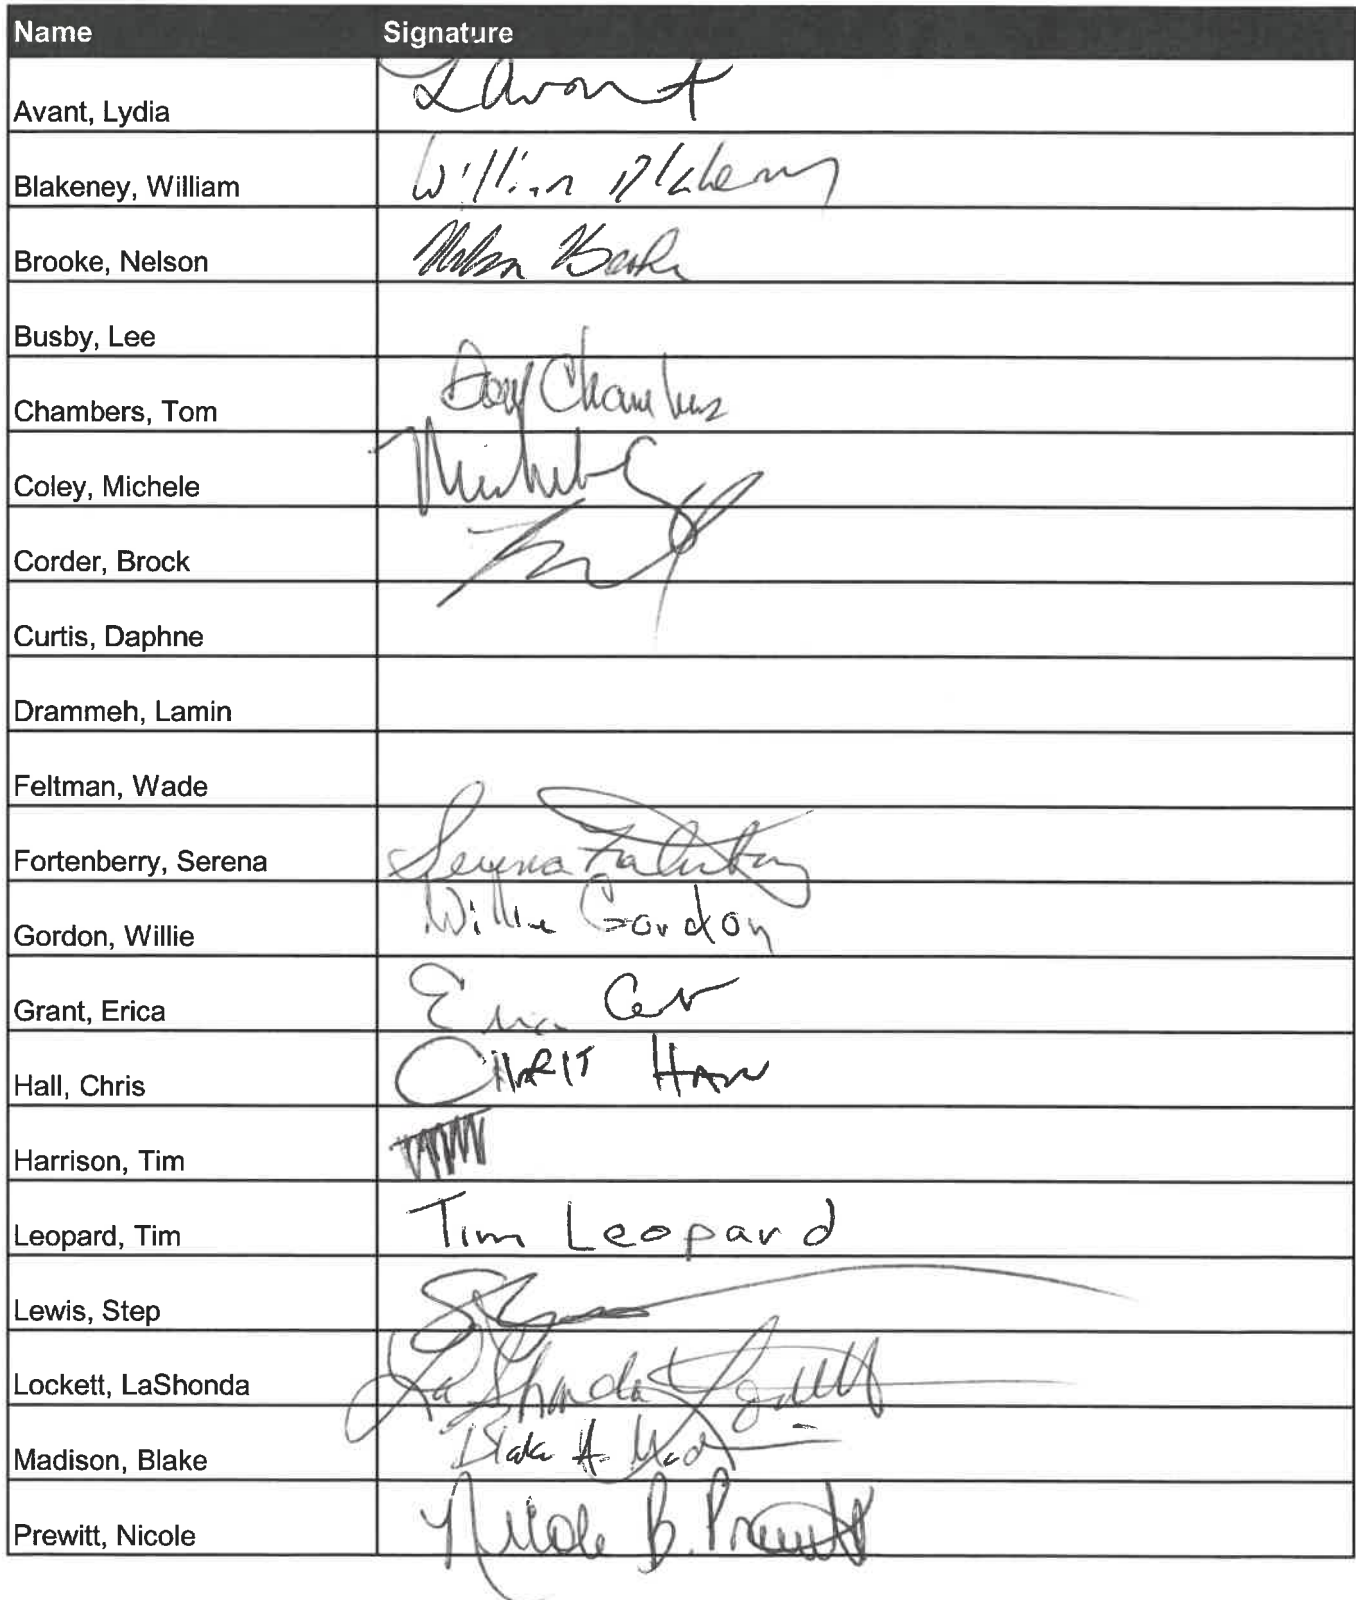 Name Signature
Avant, Lydia L Avant
Blakeney, William William Blakeney
Brooke, Nelson Nelson Brooke
Busby, Lee
Chambers, Tom Chambers
Coley, Michele Michele C
Corder, Brock
Curtis, Daphne
Drammeh, Lamin
Feltman, Wade
Fortenberry, Serena Serena
Gordon, Willie Willie Gordon
Grant, Erica Erica
Hall, Chris
Harrison, Tim
Leopard, Tim Tim Leopard
Lewis, Step
Lockett, LaShonda LaShonda Lockett
Madison, Blake Blake A. Mad
Prewitt, Nicole Nicole B. Prewitt